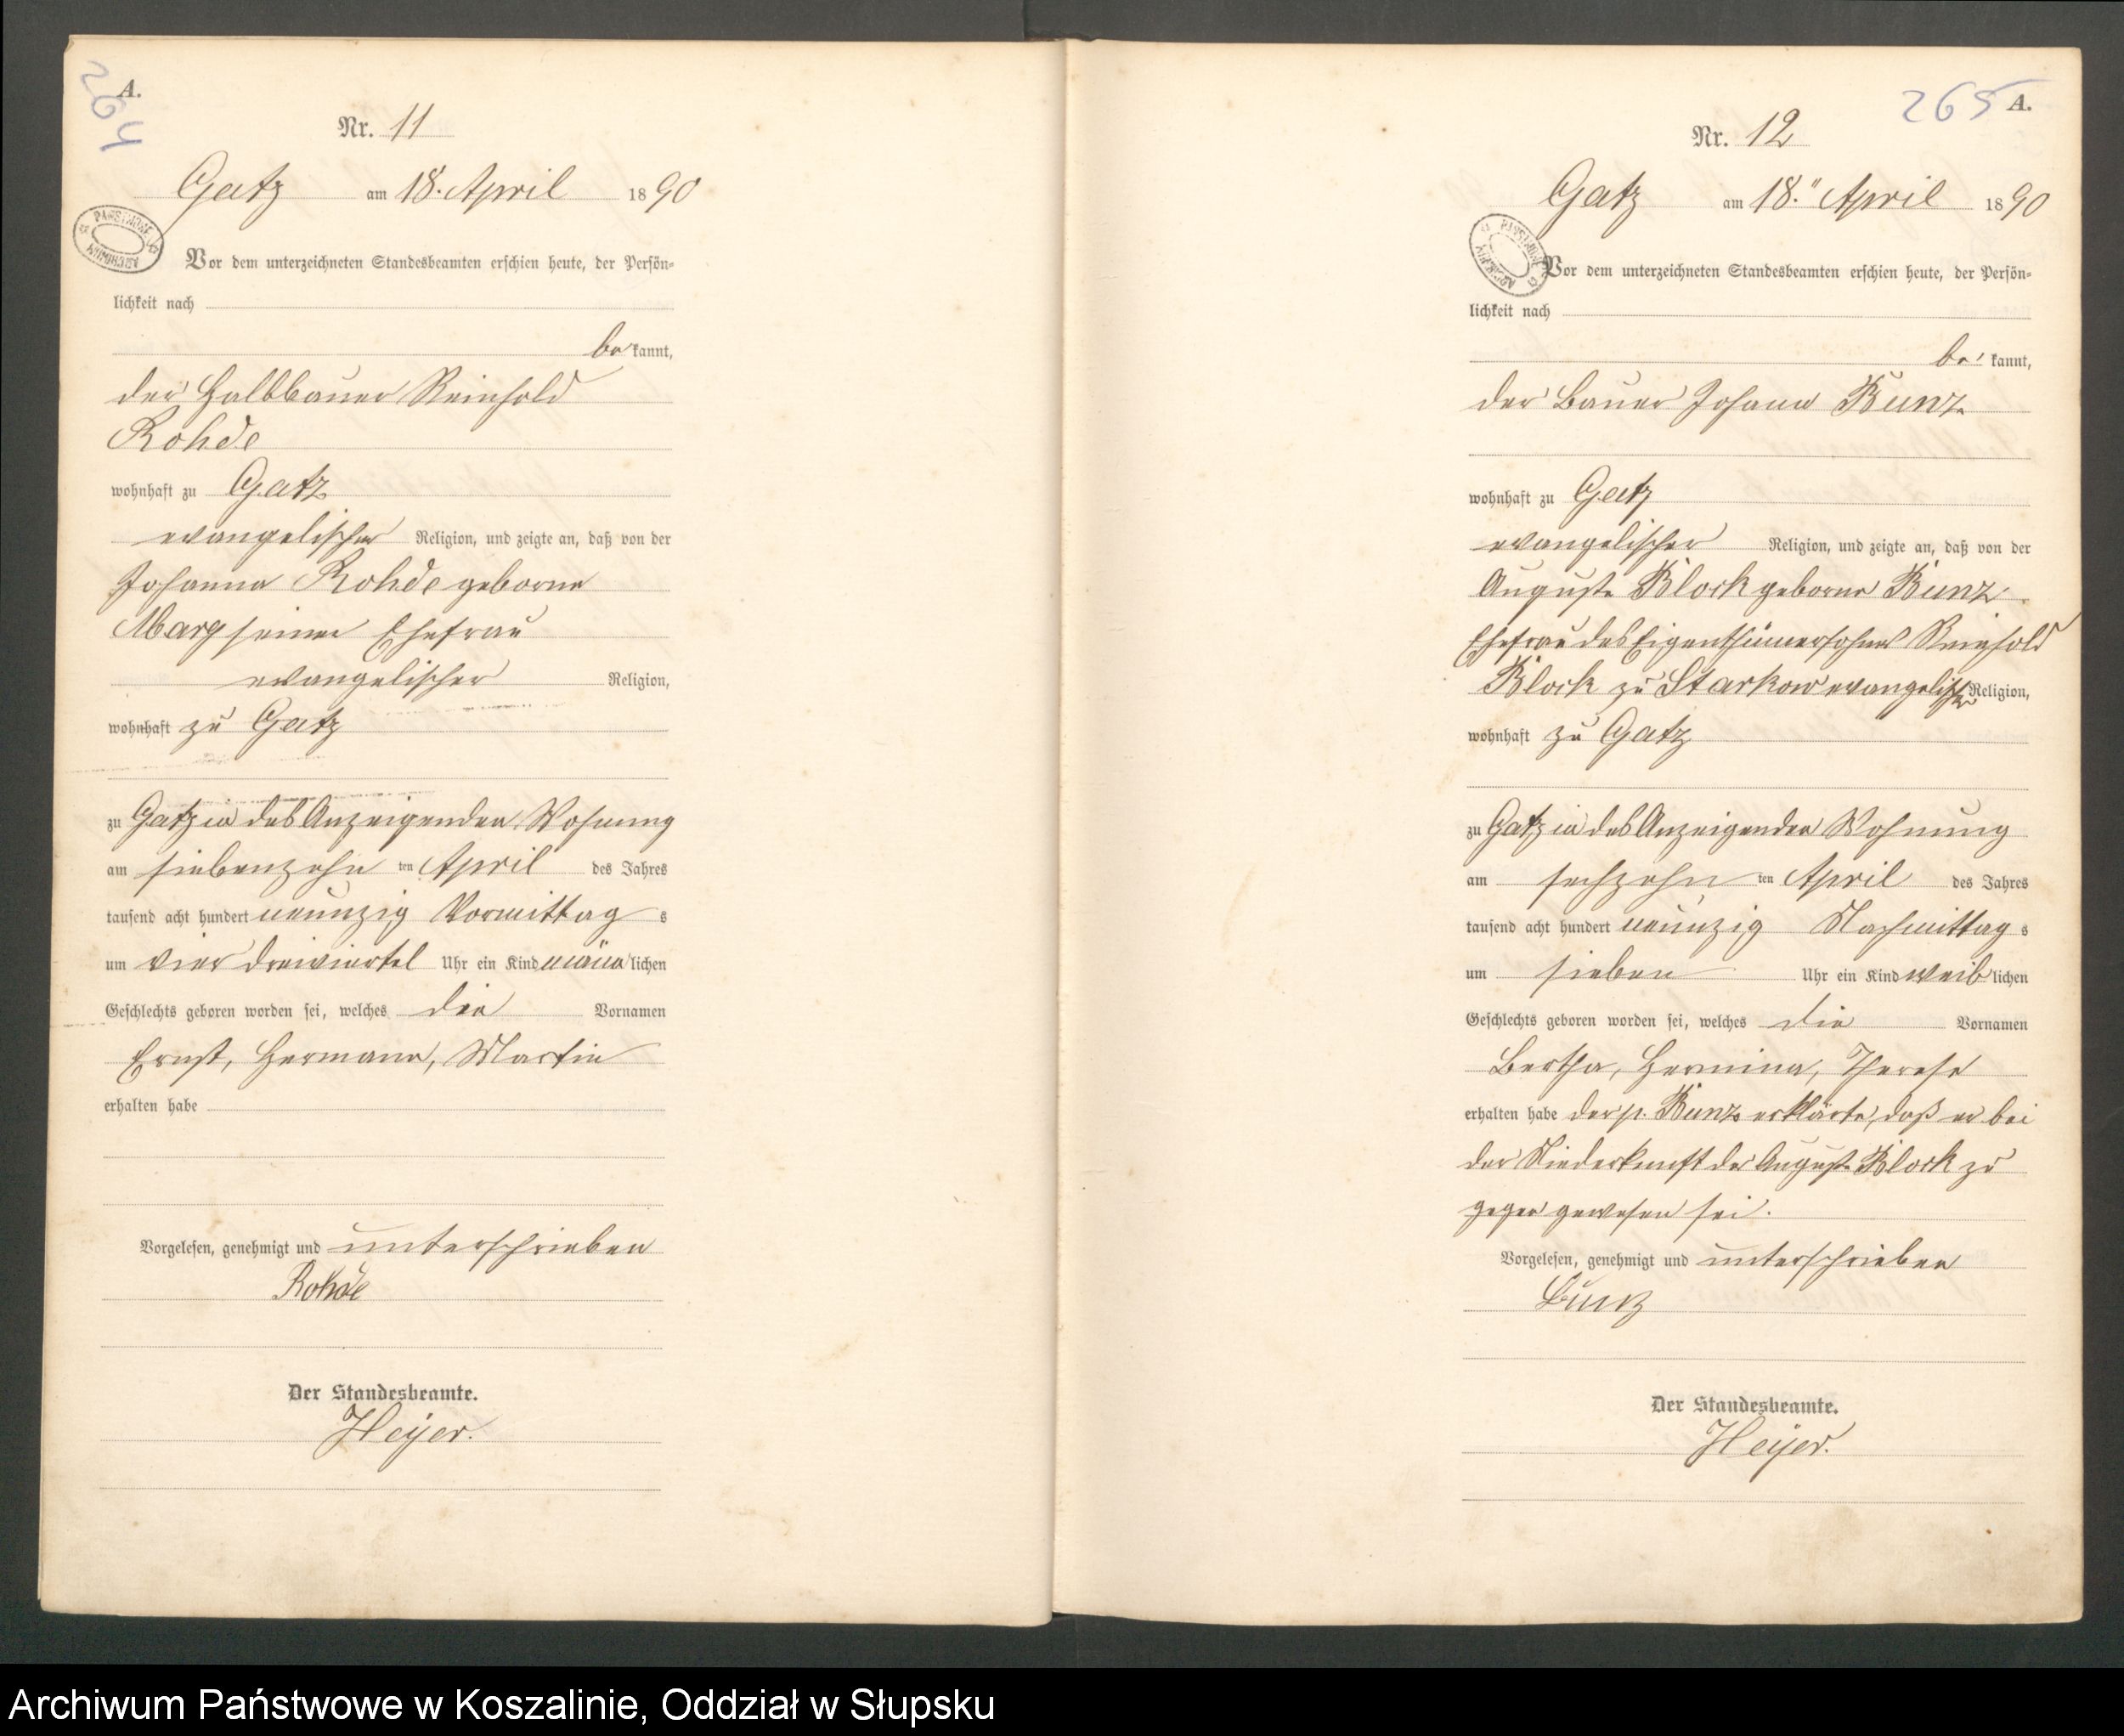 264
A.
Nr. 11
Gatz am 18. April 1890
Vor dem unterzeichneten Standesbeamten erschien heute, der Persön-
lichkeit nach
be kannt,
der Halbbauer Reinhold
Rohde
wohnhaft zu Gatz
evangelischer Religion, und zeigte an, daß von der
Johanna Rohde geborne
seiner Ehefrau
evangelischer Religion,
wohnhaft zu Gatz
zu Gatz in des Anzeigenden Wohnung
am siebenzehn ten April des Jahres
tausend acht hundert neunzig Vormittag s
um vier dreiviertel Uhr ein Kind männ lichen
Geschlechts geboren worden sei, welches die Vornamen
Ernst, Hermann, Martin
erhalten habe
Vorgelesen, genehmigt und unterschrieben
Rohde
Der Standesbeamte.
Heyer.
265
A.
Nr. 12
Gatz am 18. April 1890
Vor dem unterzeichneten Standesbeamten erschien heute, der Persön-
lichkeit nach
be kannt,
der Bauer Johann Bunz
wohnhaft zu Gatz
evangelischer Religion, und zeigte an, daß von der
Auguste Block geborne Bunz
Ehefrau des Eigenthümersohnes Reinhold
Block zu Starkow evangelischer Religion,
wohnhaft zu Gatz
zu Gatz in des Anzeigenden Wohnung
am sechzehn ten April des Jahres
tausend acht hundert neunzig Nachmittag s
um sieben Uhr ein Kind weib lichen
Geschlechts geboren worden sei, welches die Vornamen
Bertha, Hermina, Therese
erhalten habe der p. Bunz erklärte, daß er bei
der Niederkunft der Auguste Block zu
gegen gewesen sei.
Vorgelesen, genehmigt und unterschrieben
Bunz
Der Standesbeamte.
Heyer.
Archiwum Państwowe w Koszalinie, Oddział w Słupsku